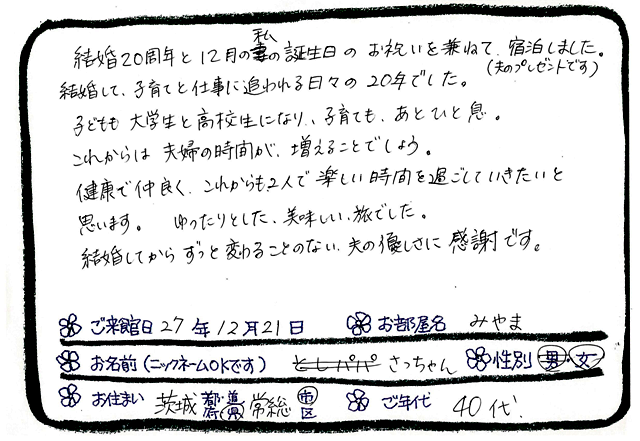 私
結婚20周年と12月の妻の誕生日のお祝いを兼ねて、宿泊しました。
(夫のプレゼントです)
結婚して、子育てと仕事に追われる日々の20年でした。
子どもも大学生と高校生になり、子育ても、あとひと息。
これからは夫婦の時間が、増えることでしょう。
健康で仲良く、これからも2人で楽しい時間を過ごしていきたいと
思います。 ゆったりとした、美味しい、旅でした。
結婚してからずっと変わることのない、夫の優しさに感謝です。
ご来館日 27年12月21日 お部屋名 みやま
お名前(ニックネームOKです) としパパ さっちゃん 性別 男・女
お住まい 茨城 都・道・府・県 常総 市・区 ご年代 40代